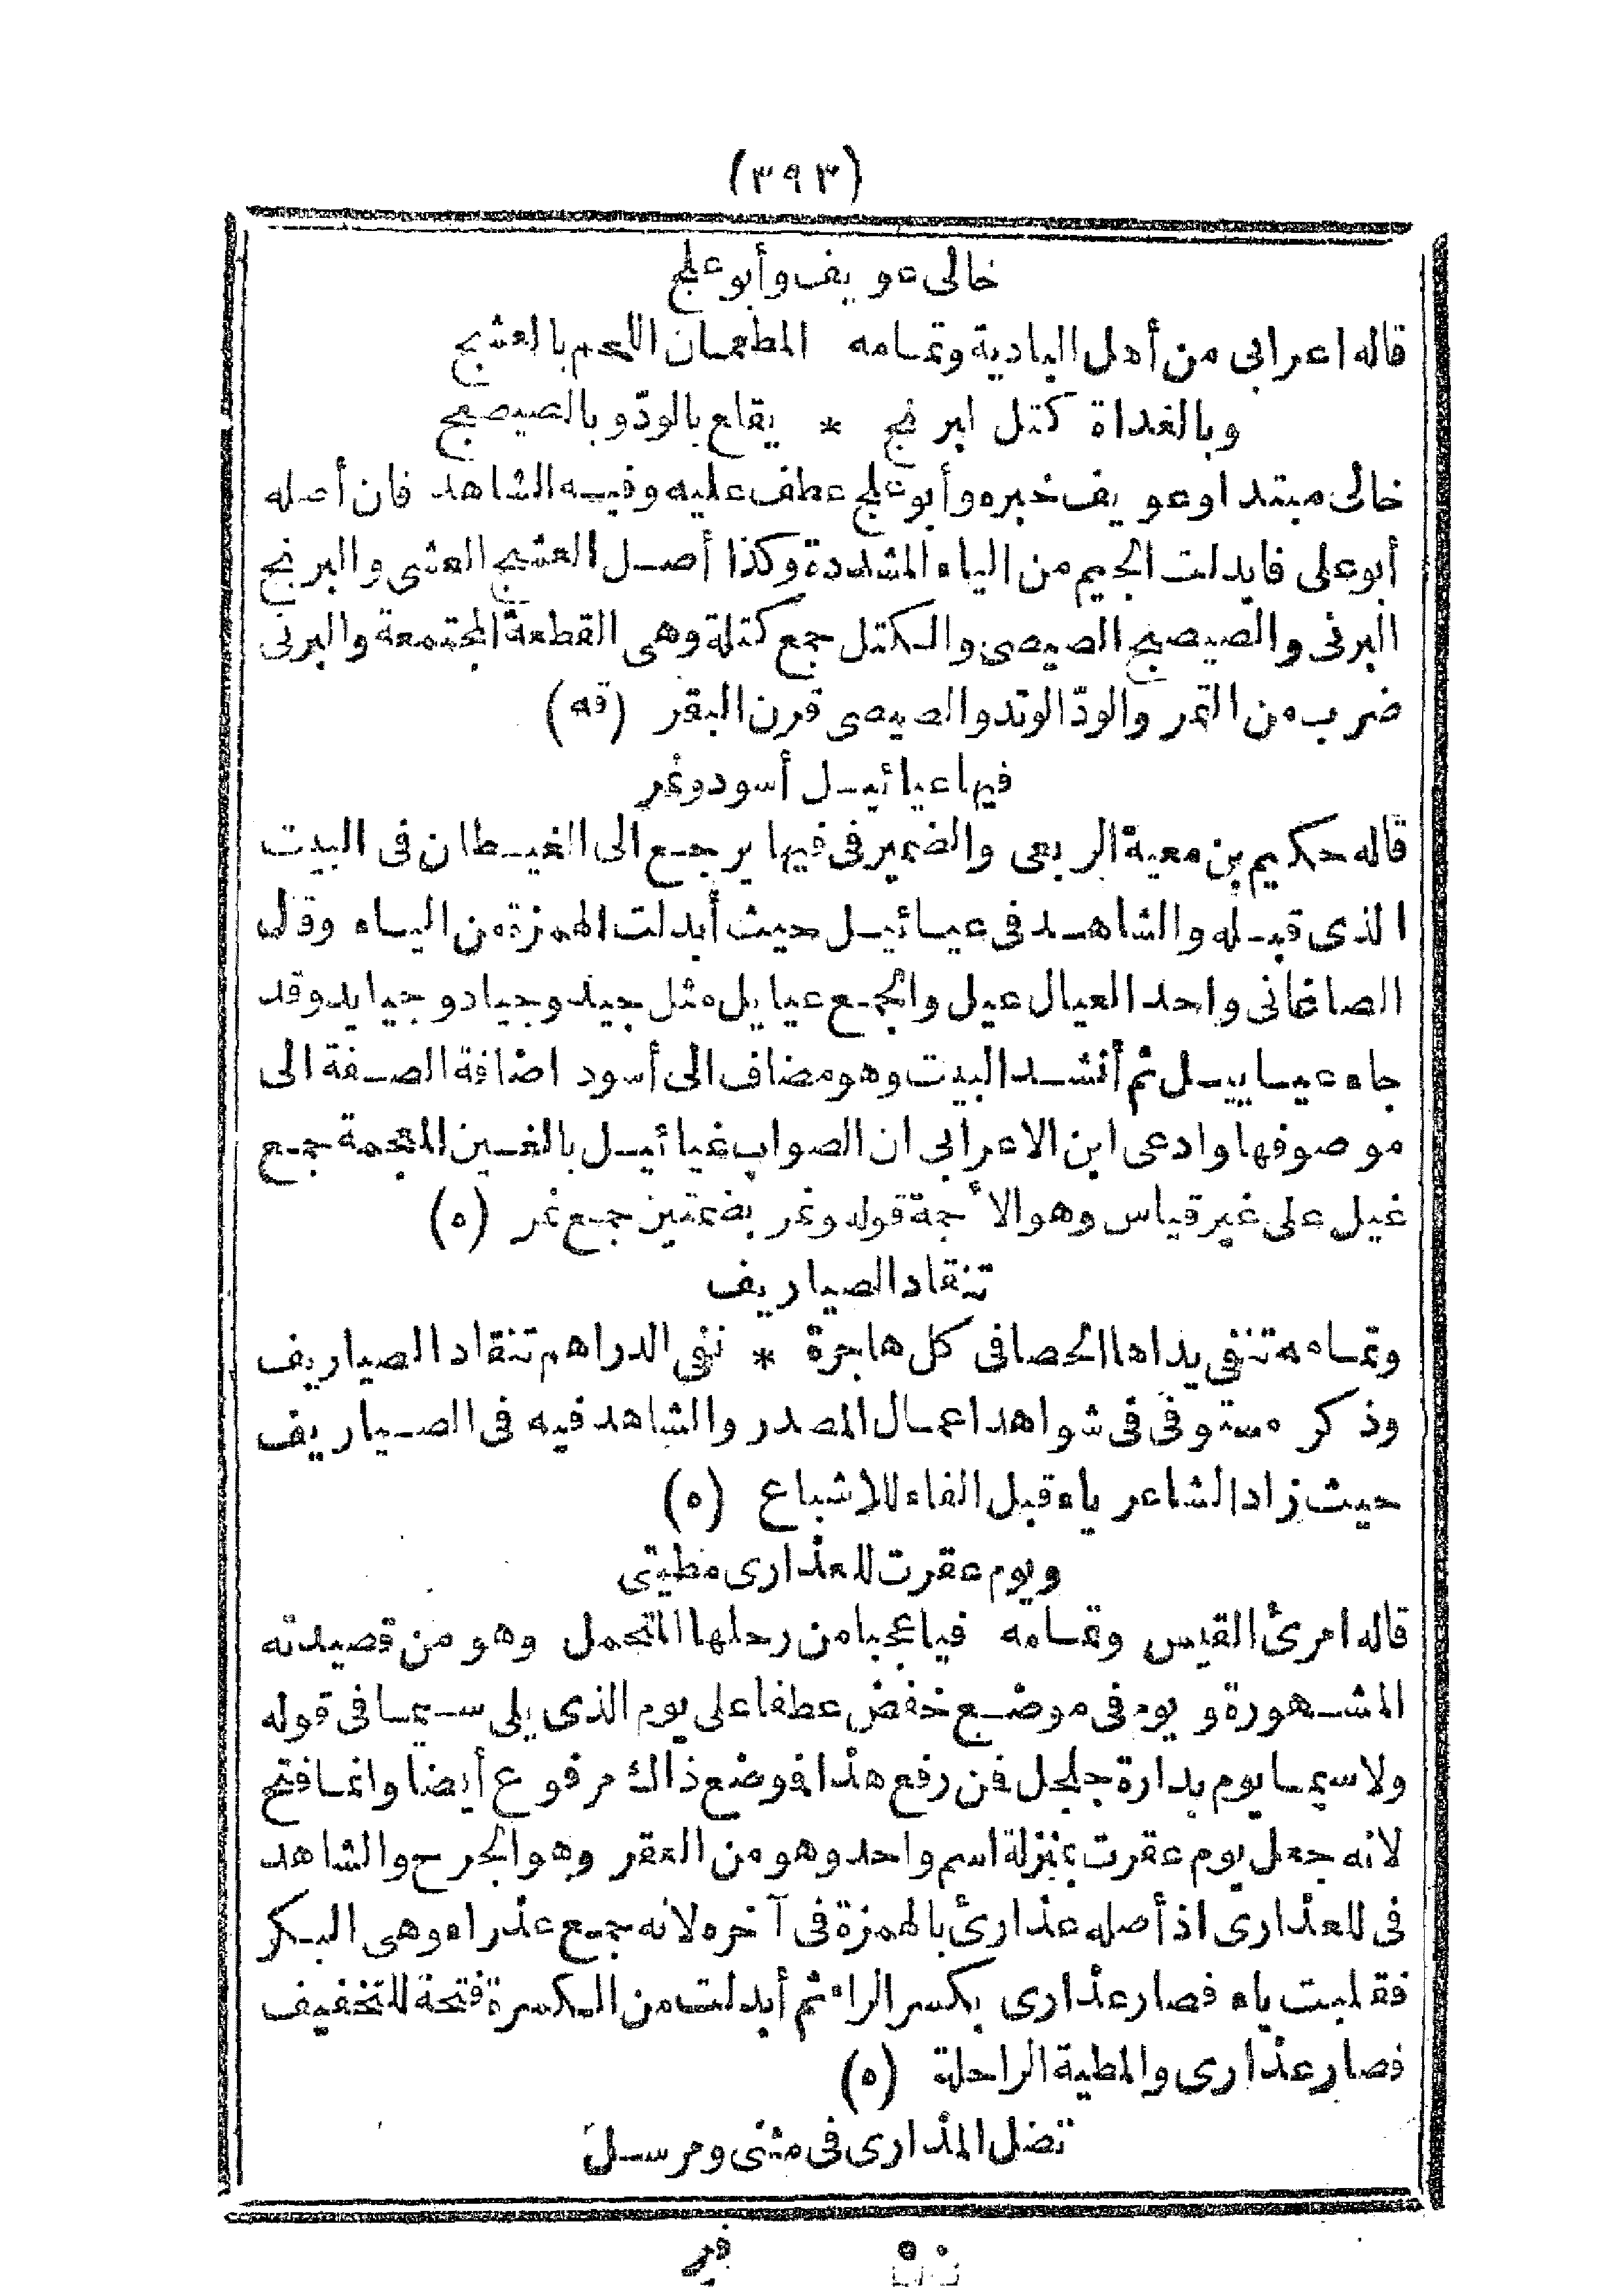 (٣٩٣)
خالى عويف وأبو علج
قاله اعرابى من أهل البادية وتمامه المطعمان اللحم بالعشج
وبالغداة كتل البرنج * يقلع بالودّ وبالصيصج
خالى مبتدا وعويف خبره وأبو علج عطف عليه وفيه الشاهد فان أصله
أبو على فابدلت الجيم من الياء المشددة وكذا أصل العشج العشى والبرنج
البرنى والصيصج الصيصى والكتل جمع كتلة وهى القطعة المجتمعة والبرنى
ضرب من التمر والودّ الوتد والصيصى قرن البقر (قه)
فيها عيائيل أسود ونمر
قاله حكيم بن معية الربعى والضمير فى فيها يرجع الى الغيطان فى البيت
الذى قبله والشاهد فى عيائيل حيث أبدلت الهمزة من الياء وقال
الصاغانى واحد العيال عيل والجمع عيايل مثل جيد وجياد وجيايد وقد
جاء عياييل ثم أنشد البيت وهو مضاف الى أسود اضافة الصفة الى
موصوفها وادعى ابن الاعرابى ان الصواب غيائيل بالغين المعجمة جمع
غيل على غير قياس وهو الأجمة قوله ونمر بضمتين جمع نمر (ه)
تنقاد الصياريف
وتمامه تنفى يداها الحصا فى كل هاجرة * نفى الدراهم تنقاد الصياريف
وذكر مستوفى فى شواهد اعمال المصدر والشاهد فيه فى الصياريف
حيث زاد الشاعر ياء قبل الفاء للاشباع (ه)
ويوم عقرت للعذارى مطيتى
قاله امرئ القيس وتمامه فيا عجبا من رحلها المتحمل وهو من قصيدته
المشهورة ويوم فى موضع خفض عطفا على يوم الذى يلى سيما فى قوله
ولا سيما يوم بدارة جلجل فمن رفع هذا فموضع ذاك مرفوع أيضا وانما فتح
لانه جعل يوم عقرت بمنزلة اسم واحد وهو من العقر وهو الجرح والشاهد
فى للعذارى اذ أصله عذارئ بالهمزة فى آخره لانه جمع عذراء وهى البكر
فقلبت ياء فصار عذارى بكسر الراء ثم أبدلت من الكسرة فتحة للتخفيف
فصار عذارى والمطية الراحلة (ه)
تضل المذارى فى مثنى ومرسل